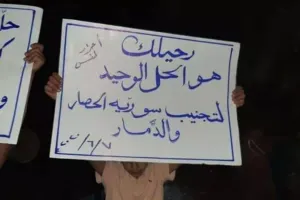 رحيلك
هو الحل الوحيد
لتجنيب سورية الحصار
والدّمار